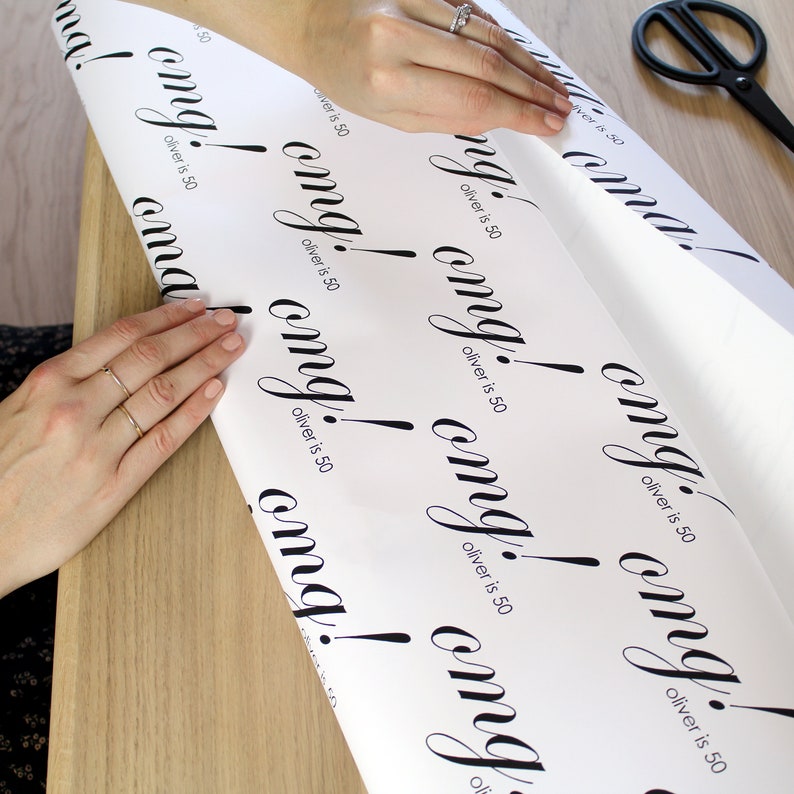 omg!
oliver is 50
omg!
oliver is 50
omg!
oliver is 50
omg!
oliver is 50
omg!
omg!
oliver is 50
omg!
oliver is 50
omg!
oliver is 50
omg!
oliver is 50
omg!
oliver is 50
omg!
oliver is 50
omg!